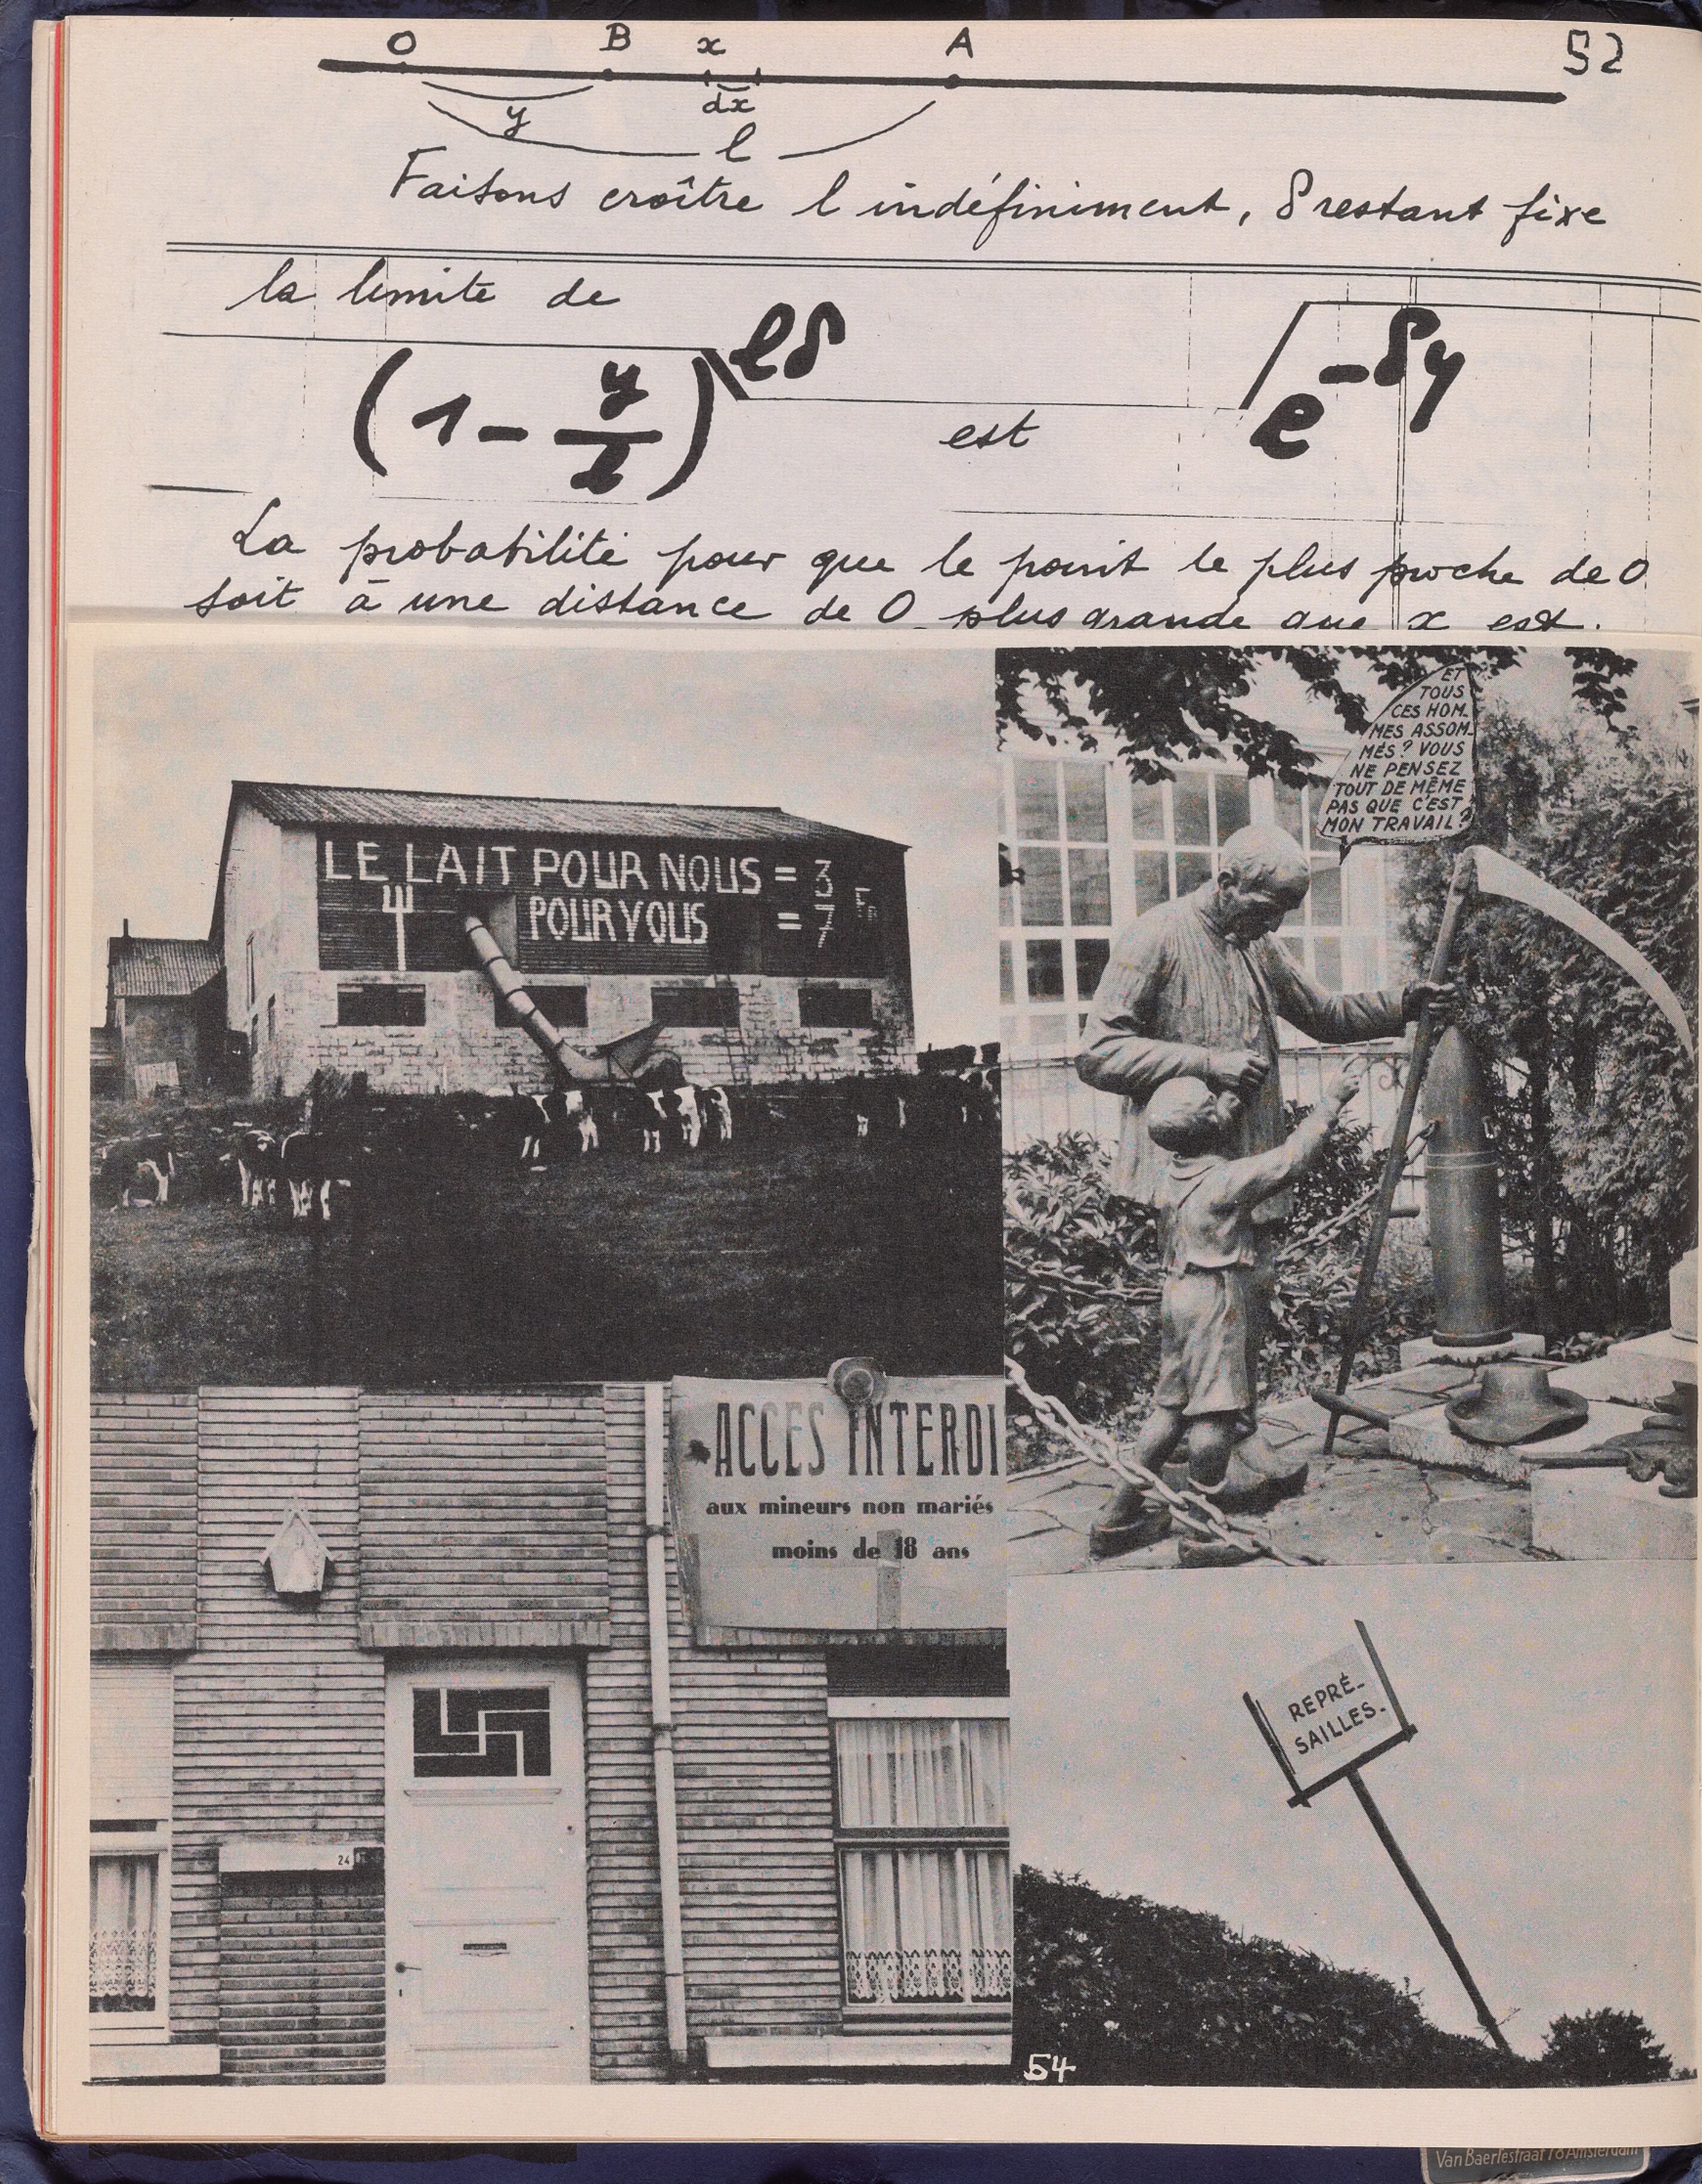 52
O B x A
dx
y
l
Faisons croître l indéfiniment, δ restant fixe
la limite de
(1 - y/l)^lδ est e^-δy
La probabilité pour que le point le plus proche de O
soit à une distance de O plus grande que x est.
LE LAIT POUR NOUS = 3
POUR VOUS = 7 Fr
ET
TOUS
CES HOM-
MES ASSOM-
MÉS? VOUS
NE PENSEZ
TOUT DE MÊME
PAS QUE C'EST
MON TRAVAIL?
ACCES INTERDI
aux mineurs non mariés
moins de 18 ans
24
REPRÉ-
SAILLES.
54
Van Baerlestraat 78 Amsterdam